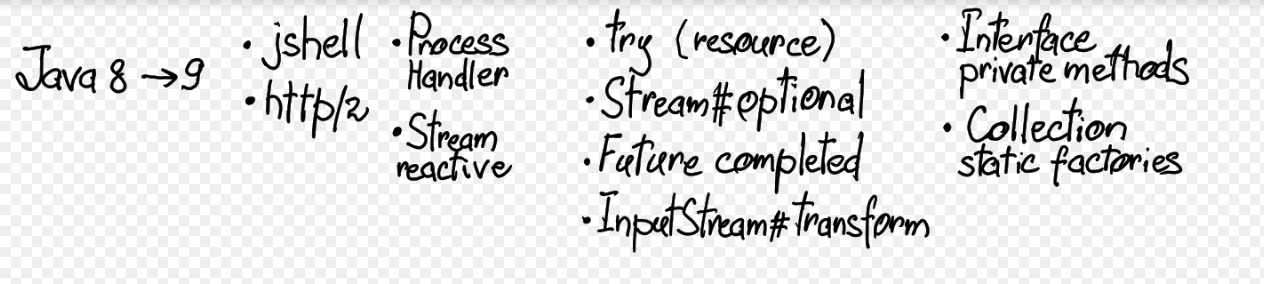 Java 8 → 9
• jshell
• http/2
• Process
Handler
• Stream
reactive
• try (resource)
• Stream#optional
• Future completed
• InputStream#transform
• Interface
private methods
• Collection
static factories